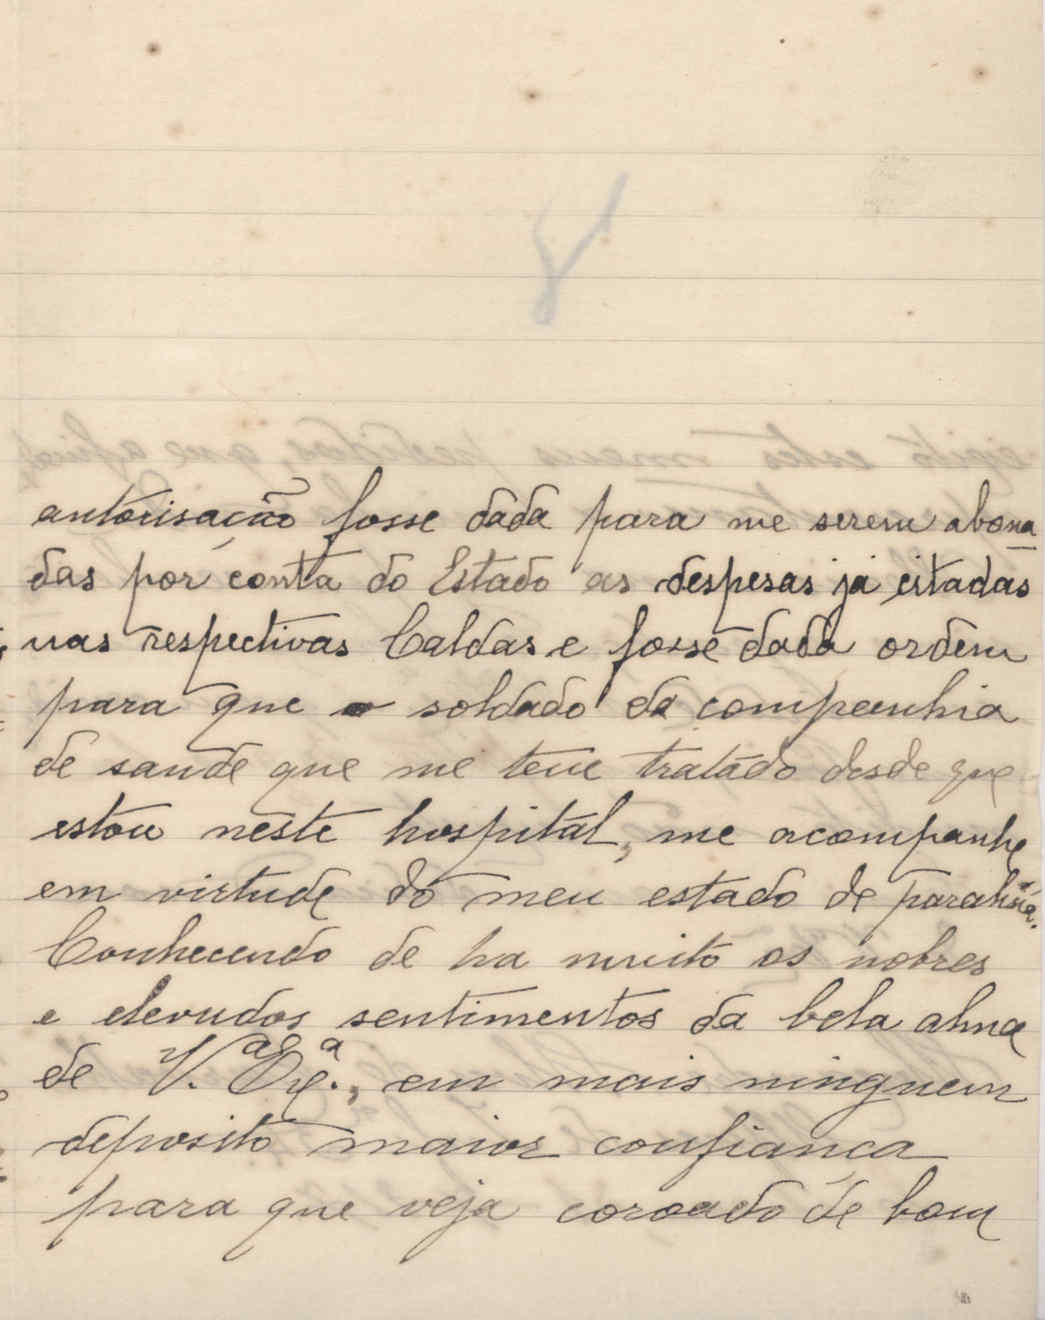 8
autorisação fosse dada para me serem abona
das por conta do Estado as despesas já citadas
nas respectivas Caldas e fosse dada ordem
para que o soldado da companhia
de saude que me teve tratado desde que
estou neste hospital, me acompanhe
em virtude do meu estado de paralisia.
Conhecendo de ha muito os nobres
e elevados sentimentos da bela alma
de V.ª Ex.ª, em mais ninguem
deposito maior confiança
para que veja coroado de bom